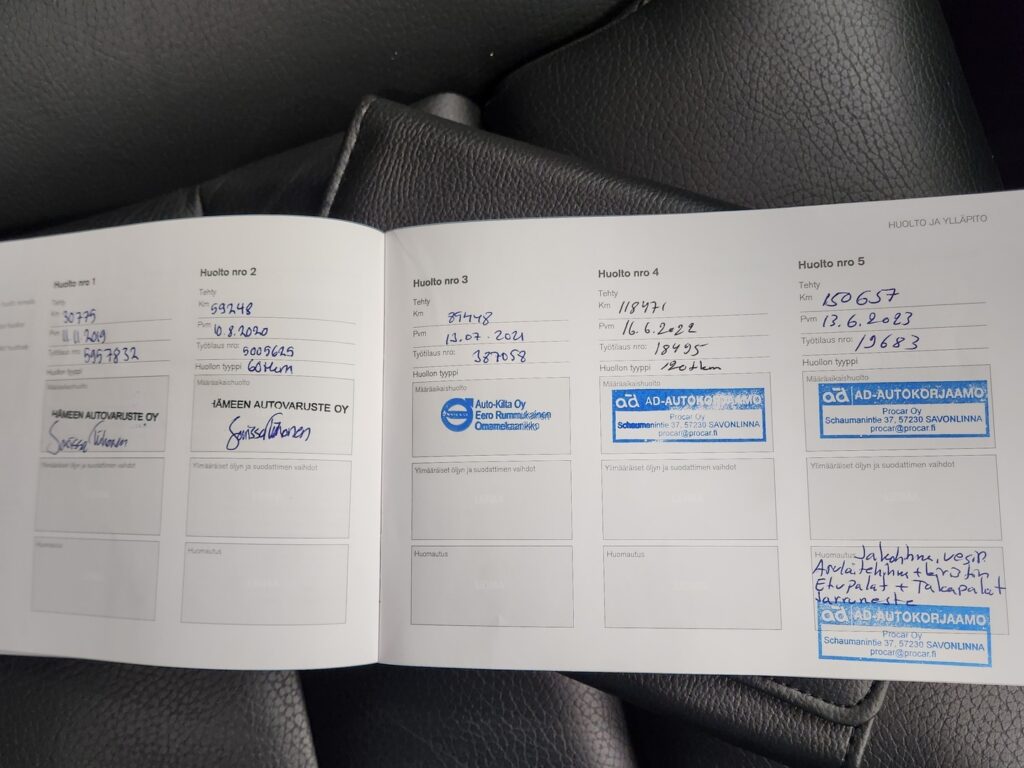 HUOLTO JA YLLÄPITO
Huolto nro 1
Tehty
Km 30775
Pvm 11.11.2019
Työtilaus nro: 5957832
Huollon tyyppi
Määräaikaishuolto
HÄMEEN AUTOVARUSTE OY
Ylimääräiset öljyn ja suodattimen vaihdot
Huomautus
Huolto nro 2
Tehty
Km 59248
Pvm 10.8.2020
Työtilaus nro: 5005625
Huollon tyyppi 60tkm
Määräaikaishuolto
HÄMEEN AUTOVARUSTE OY
Ylimääräiset öljyn ja suodattimen vaihdot
Huomautus
Huolto nro 3
Tehty
Km 89448
Pvm 13.07.2021
Työtilaus nro: 387058
Huollon tyyppi
Määräaikaishuolto
Auto-Kilta Oy
Eero Rummukainen
Omamekaanikko
Ylimääräiset öljyn ja suodattimen vaihdot
Huomautus
Huolto nro 4
Tehty
Km 118471
Pvm 16.6.2022
Työtilaus nro: 18495
Huollon tyyppi 120tkm
Määräaikaishuolto
ad AD-AUTOKORJAAMO
Procar Oy
Schaumanintie 37, 57230 SAVONLINNA
procar@procar.fi
Ylimääräiset öljyn ja suodattimen vaihdot
Huomautus
Huolto nro 5
Tehty
Km 150657
Pvm 13.6.2023
Työtilaus nro: 19683
Huollon tyyppi
Määräaikaishuolto
ad AD-AUTOKORJAAMO
Procar Oy
Schaumanintie 37, 57230 SAVONLINNA
procar@procar.fi
Ylimääräiset öljyn ja suodattimen vaihdot
Huomautus Jakohihna, vesip.
Apulaitehihna + kiristin
Etupalat + Takapalat
Jarruneste
ad AD-AUTOKORJAAMO
Procar Oy
Schaumanintie 37, 57230 SAVONLINNA
procar@procar.fi